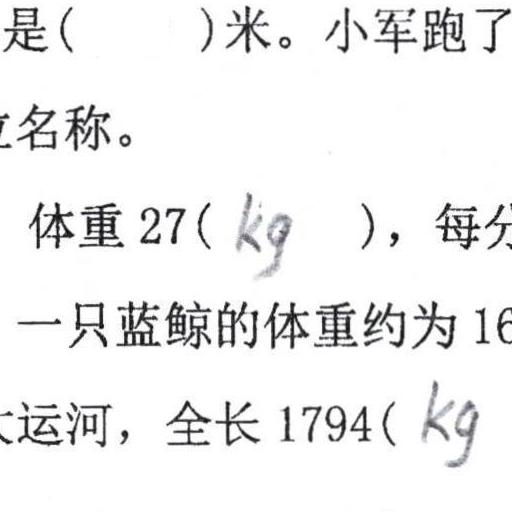 是(    )米。小军跑了
位名称。
体重27( kg ),每分
一只蓝鲸的体重约为16
大运河,全长1794( kg